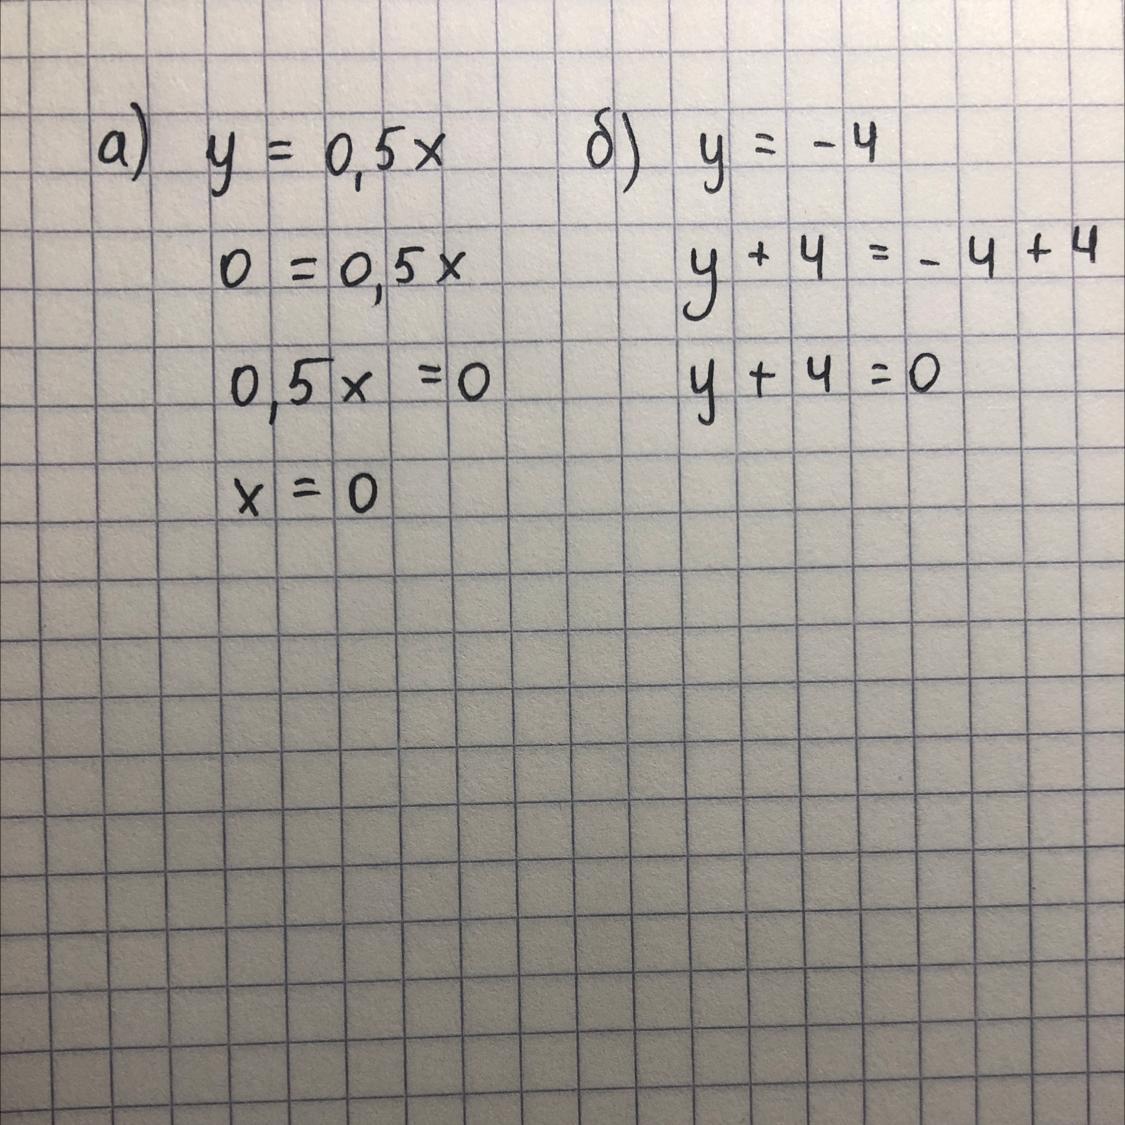 а) y = 0,5x
0 = 0,5x
0,5x = 0
x = 0
б) y = -4
y + 4 = -4 + 4
y + 4 = 0